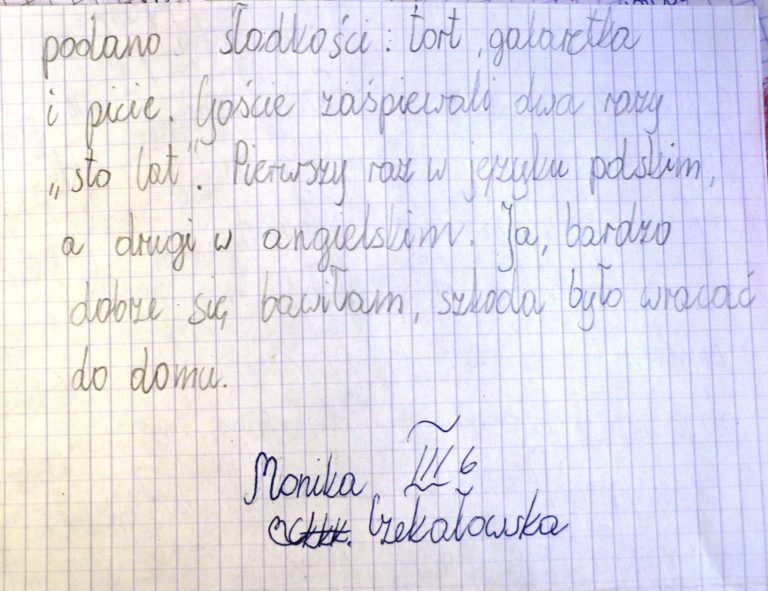 podano słodkości: tort, galaretka
i picie. Goście zaśpiewali dwa razy
„sto lat". Pierwszy raz w języku polskim,
a drugi w angielskim. Ja, bardzo
dobrze się bawiłam, szkoda było wracać
do domu.
Monika III b
Czekałowska